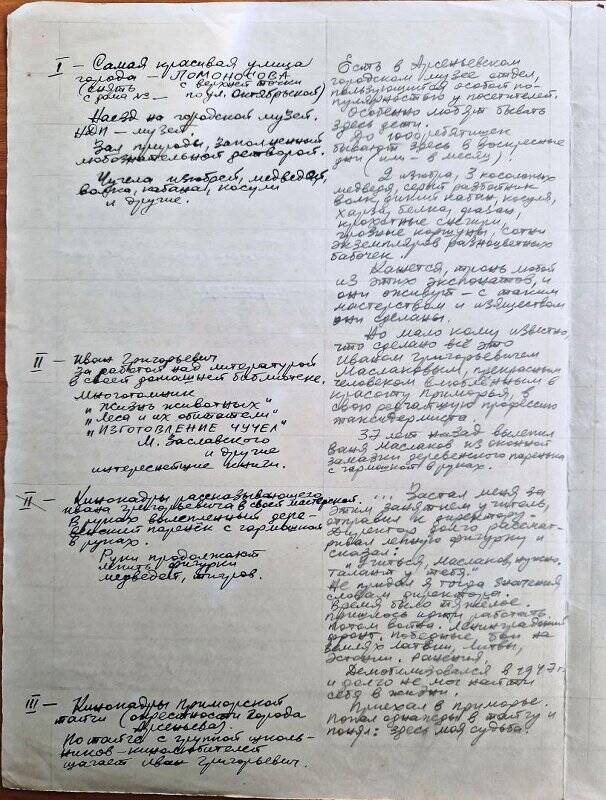 I – Самая красивая улица
города – ЛОМОНОСОВА
(снять с верхней точки
с дома №3 – по ул. Октябрьской)
Наезд на городской музей.
НДП – музей.
Зал природы, заполненный
любознательной детворой.
Чучела изюбрей, медведей,
волка, кабана, косули
и другие.
II – Иван Григорьевич
за работой над литературой
в своей домашней библиотеке.
Многотомник
"Жизнь животных"
"Леса и их обитатели"
"ИЗГОТОВЛЕНИЕ ЧУЧЕЛ"
М. Заславского
и другие
интереснейшие книги.
II – Кинокадры рассказывающего
Ивана Григорьевича в своей мастерской.
В руках вылепленный дере-
венский паренёк с гармошкой
в руках.
Руки продолжают
лепить фигурки
медведей, тигров.
III – Кинокадры Приморской
тайги (окрестности города
Арсеньева).
По тайге с группой школь-
ников-кинолюбителей
шагает Иван Григорьевич.
Есть в Арсеньевском
городском музее отдел,
пользующийся особой по-
пулярностью у посетителей.
Особенно любят бывать
здесь дети.
До 1000 ребятишек
бывают здесь в воскресные
дни (или – в месяц).
2 изюбра, 3 косолапых
медведя, серый разбойник
волк, дикий кабан, косуля,
харза, белка, фазан,
крохотные снегири,
грозные коршуны, сотни
экземпляров разноцветных
бабочек.
Кажется, тронь любой
из этих экспонатов, и
они оживут – с таким
мастерством и изяществом
они сделаны.
Но мало кому известно,
что сделано всё это
Иваном Григорьевичем
Маслаковым, прекрасным
человеком влюблённым в
красоту Приморья, в
свою редчайшую профессию
таксидермиста.
37 лет назад вылепил
Ваня Маслаков из оконной
замазки деревенского паренька
с гармошкой в руках.
... Застал меня за
этим занятием учитель,
отправил к директору.
Директор долго рассмат-
ривал лепную фигурку и
сказал:
"Учиться, Маслаков, нужно.
Талант у тебя."
Не придал я тогда значения
словам директора.
Время было тяжёлое.
Пришлось идти работать.
Потом война. Ленинградский
фронт. Победные бои на
землях Латвии, Литвы,
Эстонии. Ранения.
Демобилизовался в 1947 г.
и долго не мог найти
себя в жизни.
Приехал в Приморье.
Попал однажды в тайгу и
понял: здесь моя судьба.